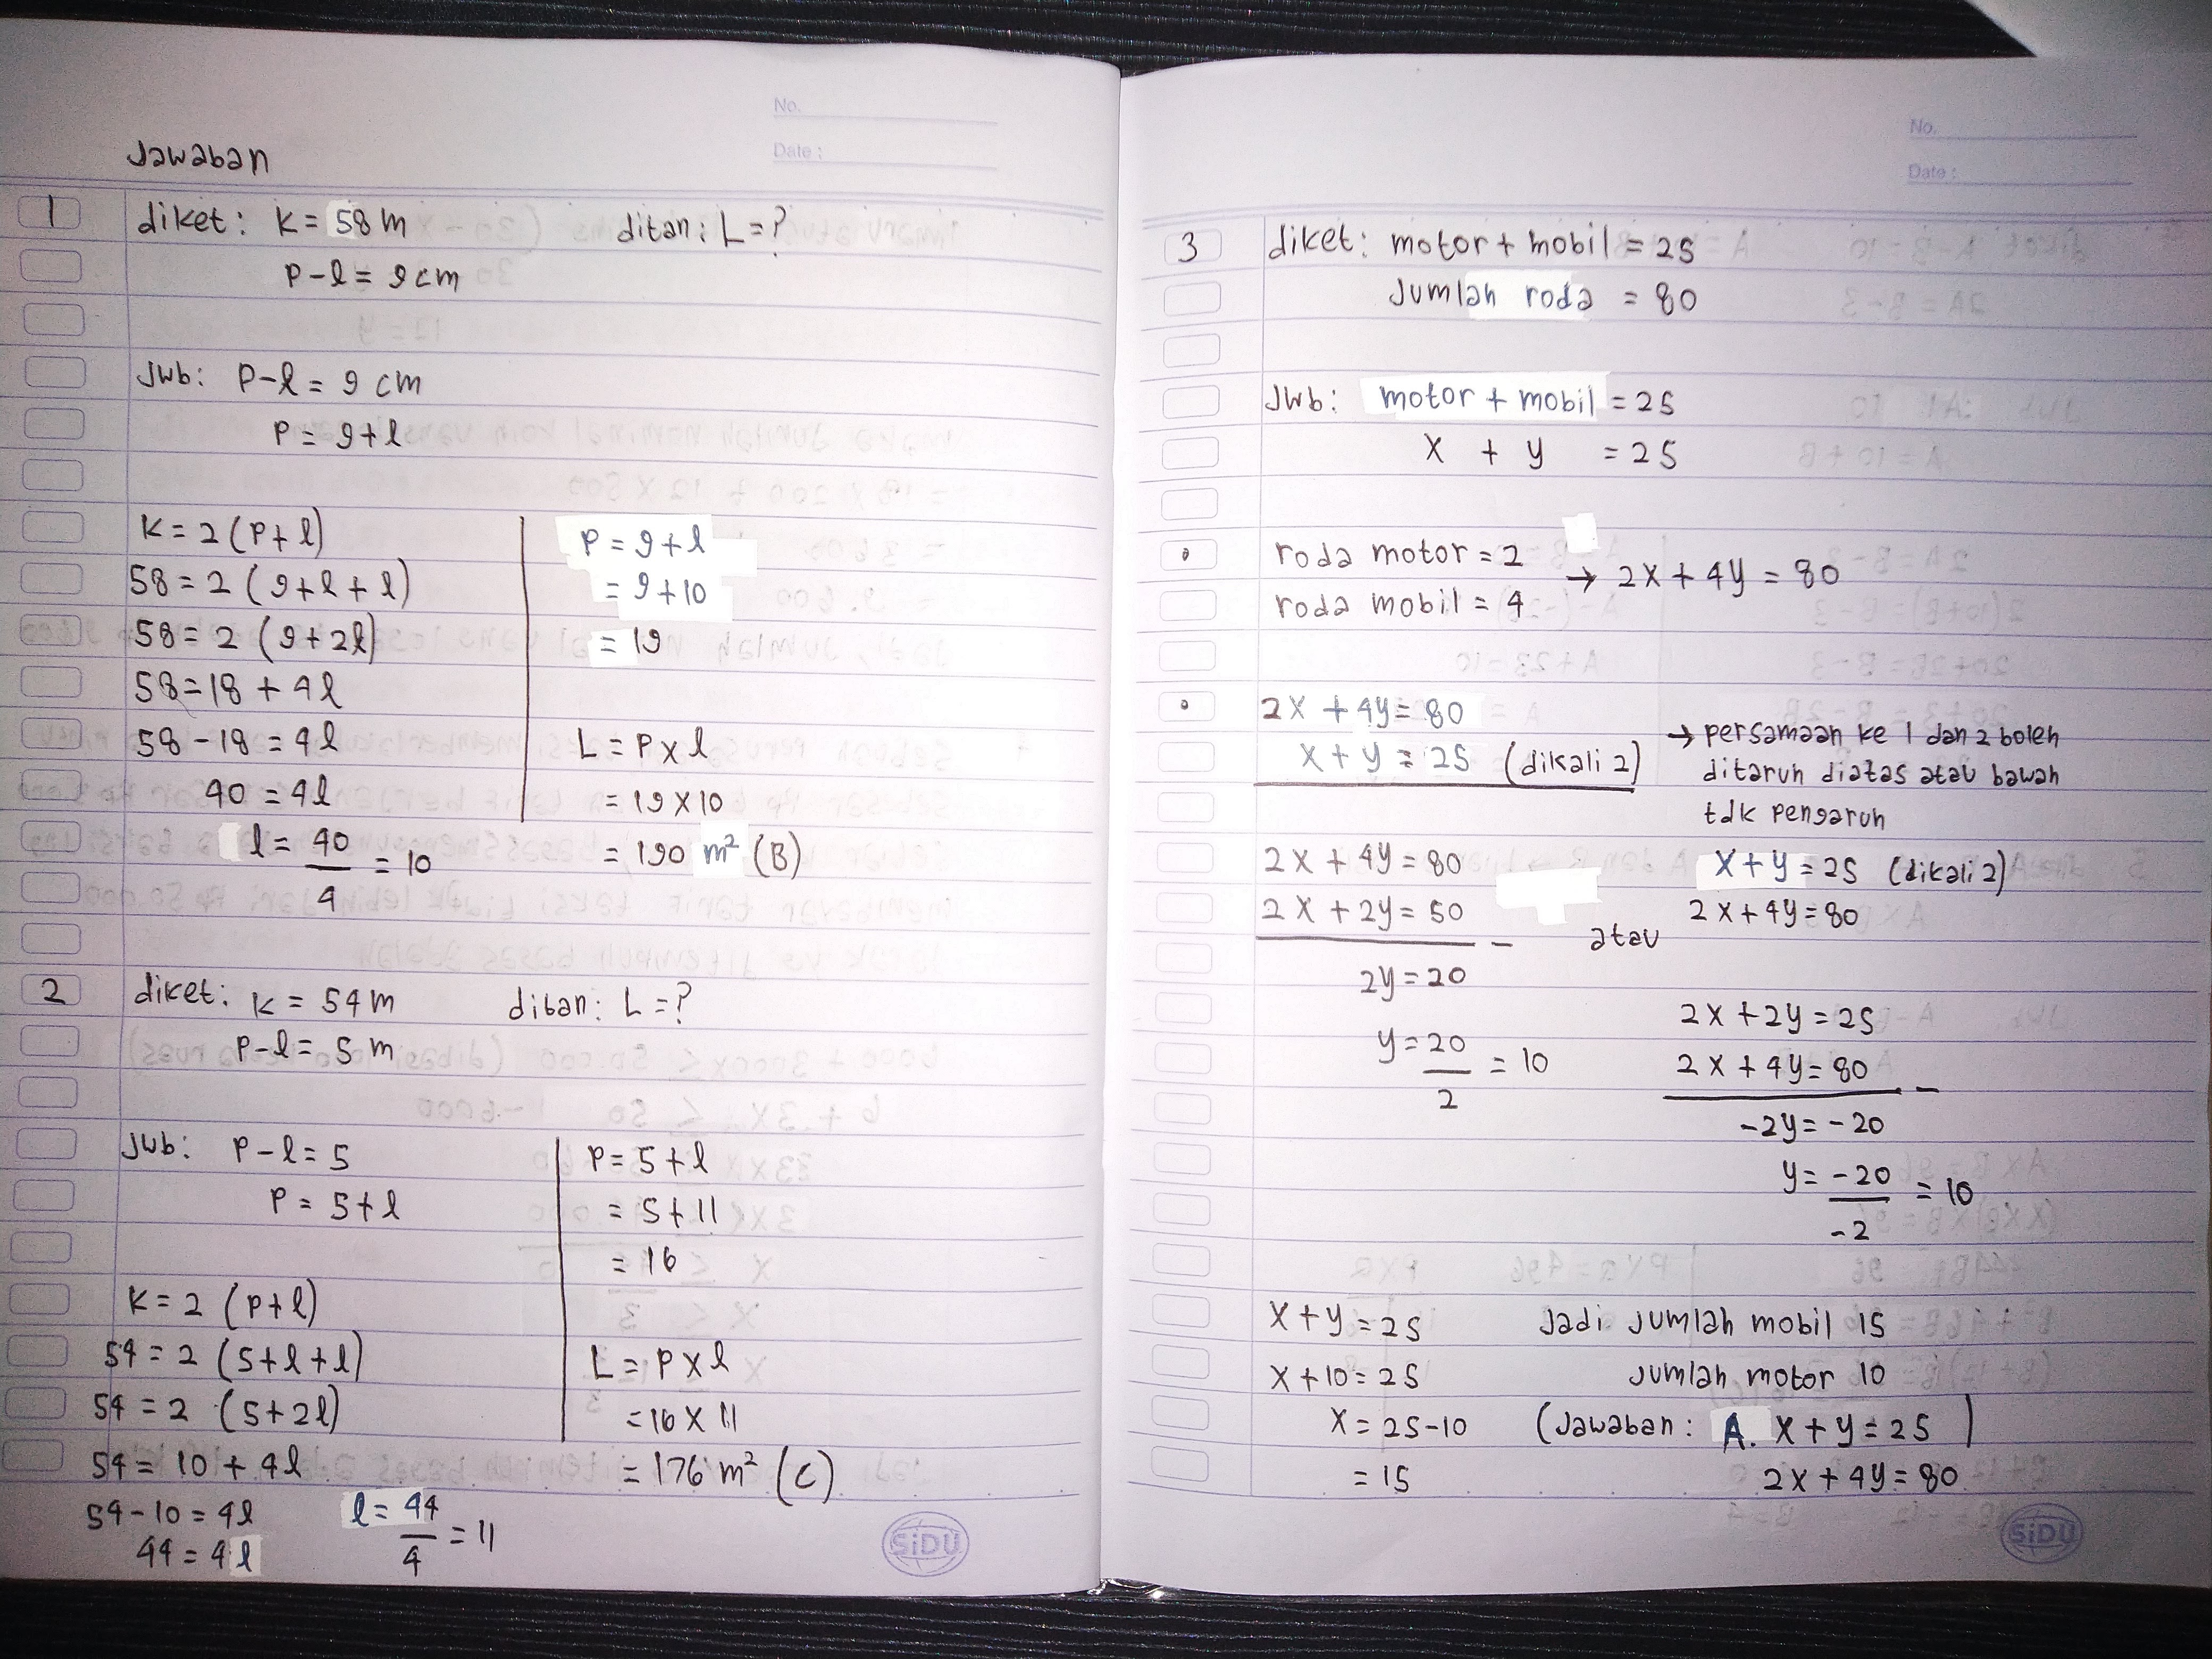 No.
Date :
Jawaban
1 diket: K = 58 m ditan: L = ?
P-l = 9 cm
Jwb: P-l = 9 cm
P = 9+l
K = 2 (P+l)
58 = 2 (9+l+l)
58 = 2 (9+2l)
58 = 18 + 4l
58-18 = 4l
40 = 4l
l = 40
4
= 10
P = 9+l
= 9+10
= 19
L = P x l
= 19 x 10
= 190 m² (B)
2 diket: K = 54 m ditan: L = ?
P-l = 5 m
Jwb: P-l = 5
P = 5+l
K = 2 (P+l)
54 = 2 (5+l+l)
54 = 2 (5+2l)
54 = 10 + 4l
54-10 = 4l
44 = 4l
l = 44
4
= 11
P = 5+l
= 5+11
= 16
L = P x l
= 16 x 11
= 176 m² (C)
SiDU
No.
Date :
3 diket: motor + mobil = 25
Jumlah roda = 80
Jwb: motor + mobil = 25
X + y = 25
roda motor = 2
roda mobil = 4
→ 2X + 4y = 80
2X + 4y = 80
X + y = 25 (dikali 2)
→ persamaan ke 1 dan 2 boleh
ditaruh diatas atau bawah
tdk pengaruh
2X + 4y = 80
2X + 2y = 50
-
2y = 20
y = 20
2
= 10
atau
X + y = 25 (dikali 2)
2X + 4y = 80
2X + 2y = 25
2X + 4y = 80
-
-2y = -20
y = -20
-2
= 10
X + y = 25
X + 10 = 25
X = 25-10
= 15
Jadi jumlah mobil 15
Jumlah motor 10
(Jawaban: A. X + y = 25 )
2X + 4y = 80
SiDU